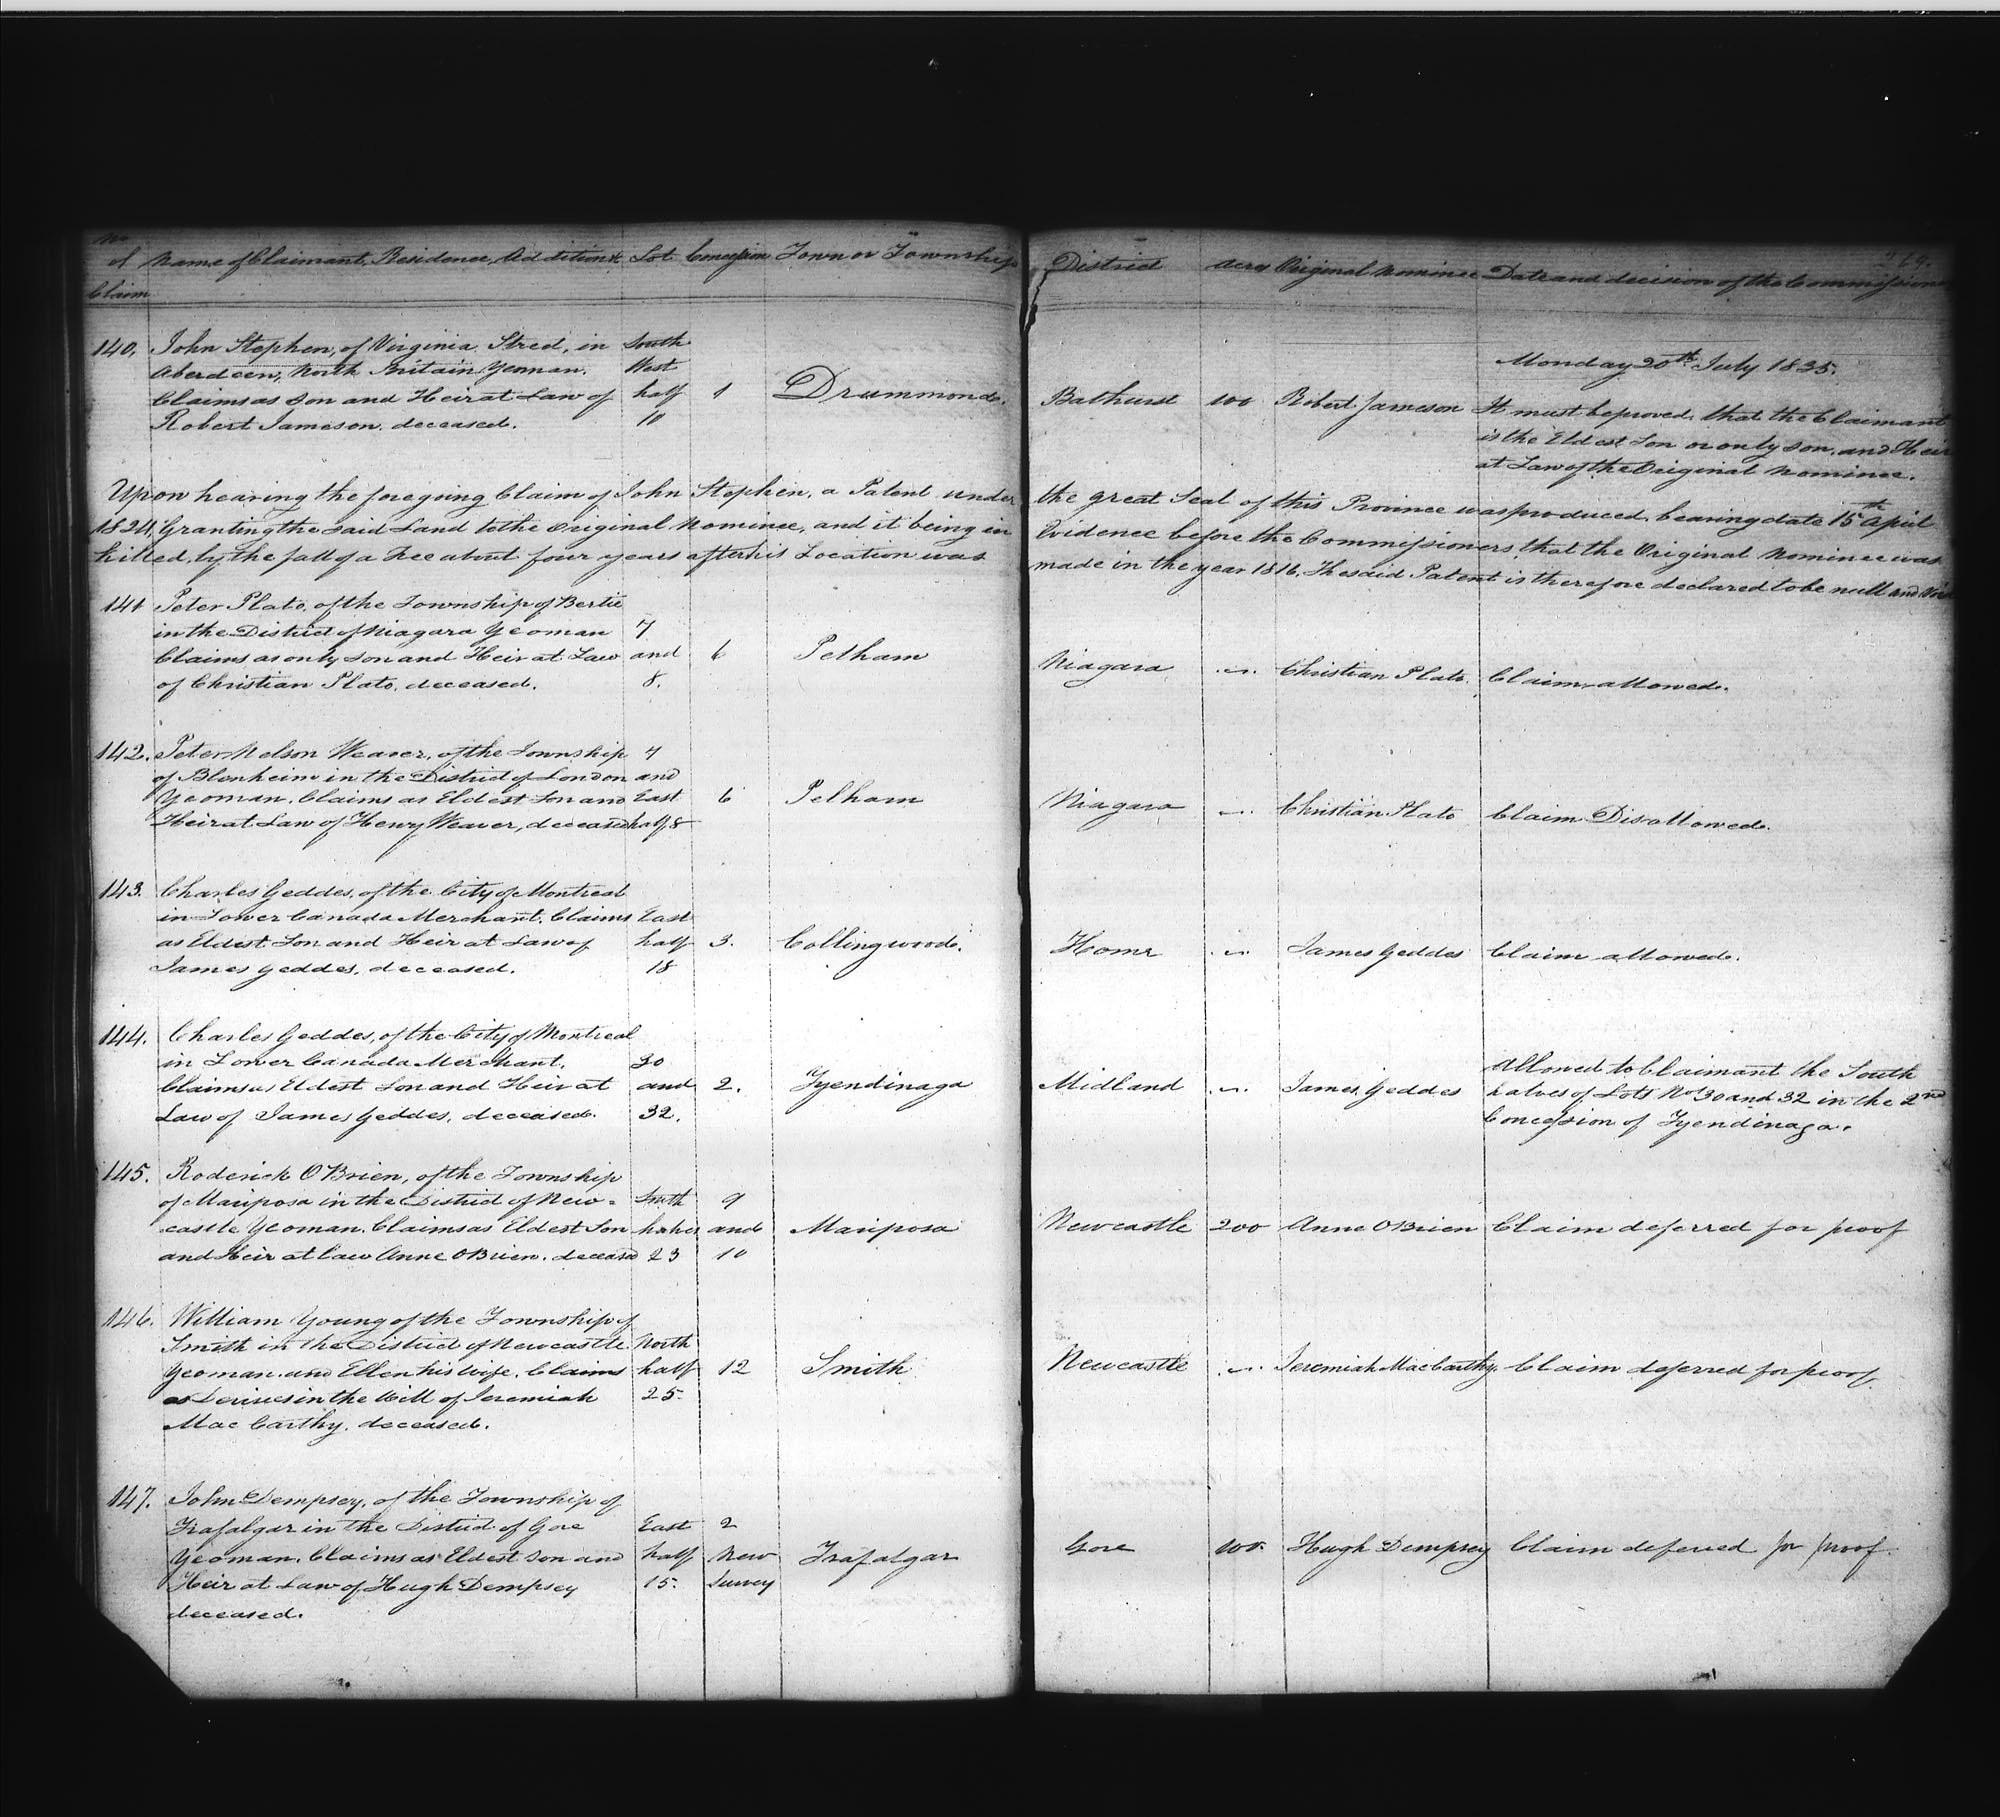 No
of Name of Claimant, Residence, Addition &c Lot Concession Town or Township District Acres Original Nominee Date and decision of the Commissioners
Claim
Monday 20th July 1835.
140. John Stephen, of Virginia Street, in South
Aberdeen, North Britain Yeoman. West
Claims as Son and Heir at Law of half 1 Drummond. Bathurst 100 Robert Jameson It must be proved that the Claimant
Robert Jameson, deceased. 10 is the Eldest Son or only Son, and Heir
at Law of the Original Nominee.
Upon hearing the foregoing Claim of John Stephen, a Patent under the great Seal of this Province was produced, bearing date 15th April
1824, Granting the said Land to the Original Nominee, and it being in Evidence before the Commissioners, that the Original Nominee was
killed, by the fall of a tree about four years after his Location was made in the year 1816. The said Patent is therefore declared to be null and void
141 Peter Plato, of the Township of Bertie
in the District of Niagara Yeoman 7
Claims as only Son and Heir at Law and 6 Pelham Niagara " Christian Plato. Claim allowed.
of Christian Plato, deceased. 8.
142. Peter Nelson Weaver, of the Township 7
of Blenheim in the District of London and
Yeoman. Claims as Eldest Son and East 6 Pelham Niagara " Christian Plato Claim Disallowed.
Heir at Law of Henry Weaver, deceased half 8
143. Charles Geddes, of the City of Montreal
in Lower Canada Merchant. Claims East
as Eldest Son and Heir at Law of half 3. Collingwood. Home " James Geddes Claim allowed.
James Geddes, deceased. 18
144. Charles Geddes, of the City of Montreal
in Lower Canada Merchant. 30 Allowed to Claimant the South
Claims as Eldest Son and Heir at and 2. Tyendinaga Midland " James Geddes halves of Lots No 30 and 32 in the 2nd
Law of James Geddes, deceased. 32. Concession of Tyendinaga.
145. Roderick O'Brien, of the Township
of Mariposa in the District of New= South 9
castle Yeoman. Claims as Eldest Son halves and Mariposa Newcastle 200 Anne O'Brien Claim deferred for proof
and Heir at law Anne O'Brien, deceased 23 10
146. William Young of the Township of
Smith in the District of Newcastle North
Yeoman and Ellen his Wife, Claims half 12 Smith Newcastle " Jeremiah MacCarthy. Claim deferred for proof.
as Devisees in the Will of Jeremiah 25.
MacCarthy, deceased.
147. John Dempsey, of the Township of
Trafalgar in the District of Gore East 2
Yeoman. Claims as Eldest Son and half New Trafalgar Gore 100. Hugh Dempsey Claim deferred for proof.
Heir at Law of Hugh Dempsey 15. Survey
deceased.